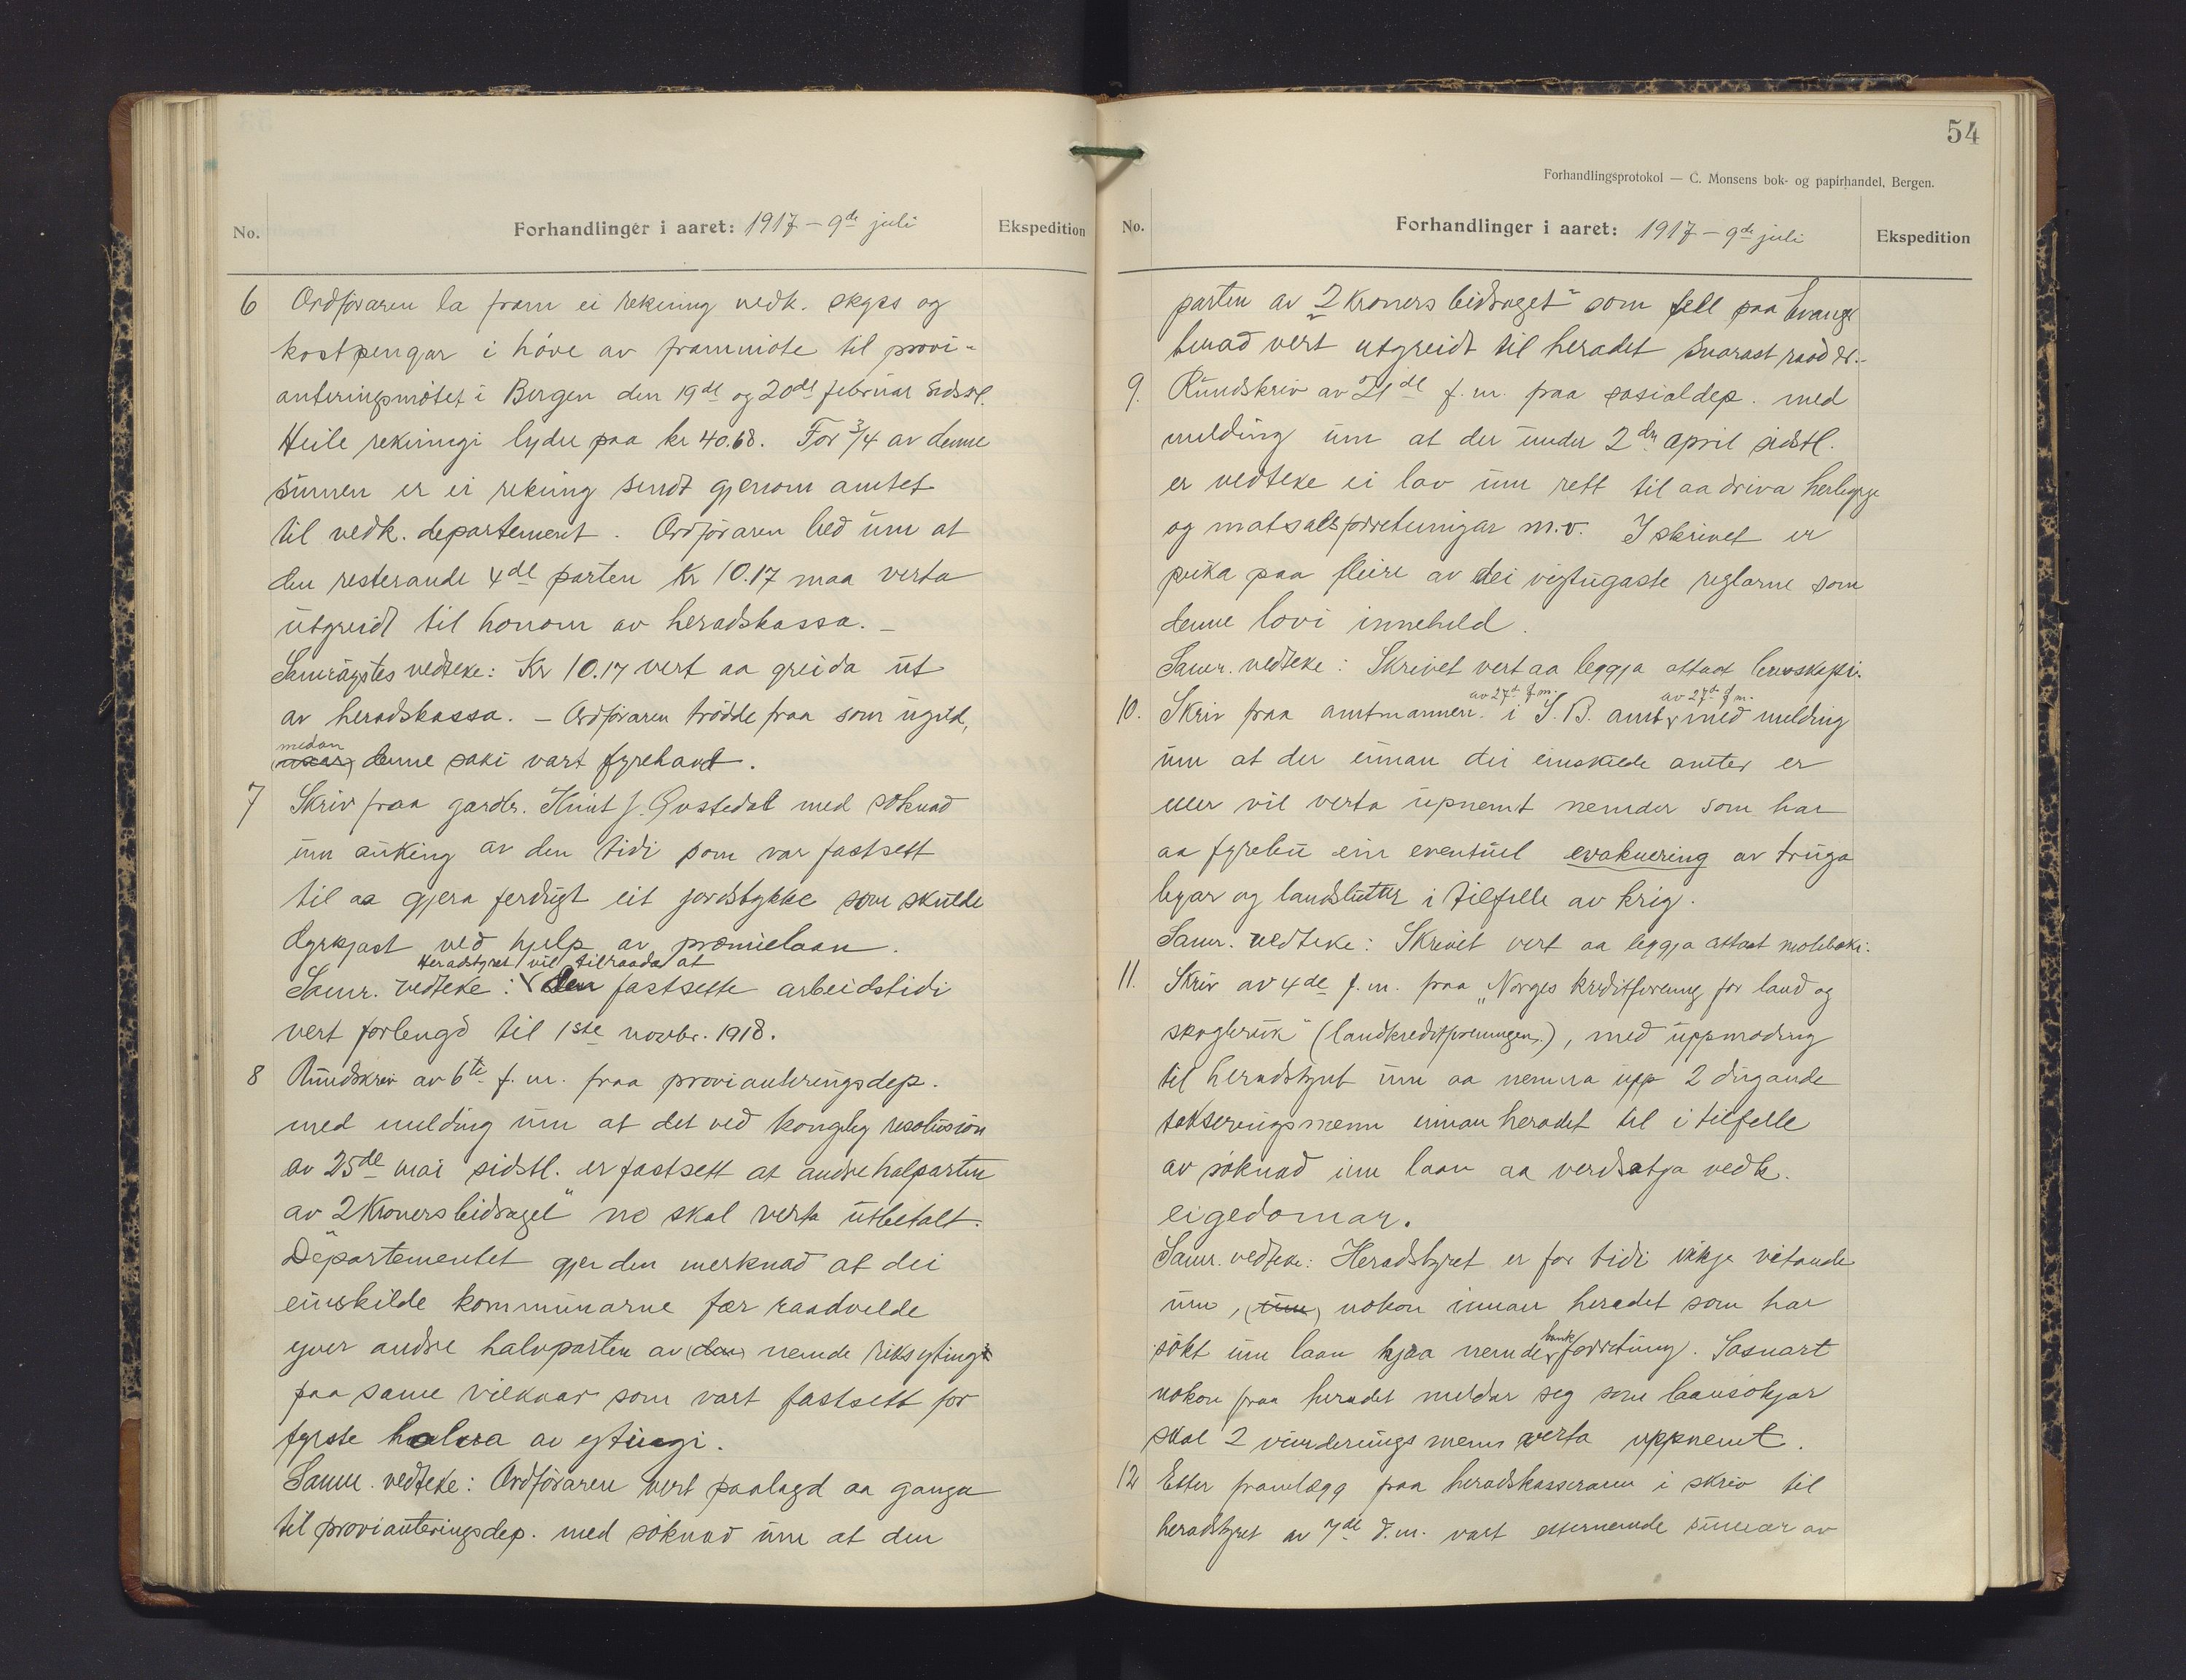 No.
Forhandlinger i aaret: 1917 – 9de juli
Ekspedition
6 Ordföraren la fram ei rekning vedk. skyss og
kostpengar i höve av frammöte til provi-
anteringsmötet i Bergen den 19de og 20de februar sidstl.
Heile rekningi lyder paa kr 40.68. For 3/4 av denne
summen er ei rekning sendt gjenom amtet
til vedk. departement. Ordföraren bed um at
den resterande 4de parten Kr 10.17 maa verta
utgreidt til honom av heradskassa. –
Samröystes vedteke: Kr 10.17 vert aa greida ut
av heradskassa. – Ordföraren trödde fraa som ugild,
medan
denne saki vart fyrehavt.
7 Skriv fraa gardbr. Knut J. med söknad
um auking av den tidi som var fastsett
til aa gjera ferdigt eit jordstykke som skulde
dyrkjast ved hjelp av præmielaan.
Heradstyret vil tilraada at
Samr. vedteke: den fastsette arbeidstidi
vert forlengd til 1ste novbr. 1918.
8 Rundskriv av 6te f.m. fraa provianteringsdep.
med melding um at det ved kongleg resolusion
av 25de mai sidstl. er fastsett at andre halparten
av „2 Kronersbidraget" no skal verta utbetalt.
Departementet gjer den merknad at dei
einskilde kommunarne fær raadvelde
yver andre halvparten av (den) nemde riksyting
paa same vilkaar som vart fastsett for
fyrste halva av ytingi.
Samr. vedteke: Ordföraren vert paalagd aa ganga
til provianteringsdep. med söknad um at den
54
Forhandlingsprotokol — C. Monsens bok- og papirhandel, Bergen.
No.
Forhandlinger i aaret: 1917 – 9de juli
Ekspedition
parten av „2 Kroners bidraget" som fell paa
herad vert utgreidt til heradet snarast raad er.-
9. Rundskriv av 21de f.m. fraa sosialdep. med
melding um at der under 2den april sidstl.
er vedteke ei lov um rett til aa driva herbyrge
og matsalsforretningar m.v. I skrivet er
peika paa fleire av dei vigtugaste reglarne som
denne lovi inneheld.
Samr. vedteke: Skrivet vert aa leggja attaat brevskapi.
av 27de f.m. av 27de f.m.
10. Skriv fraa amtmannen i S. B. amt, med melding
um at der innan dei einskilde amter er
eller vil verta upnemt nemder som har
aa fyrebu ein eventuel evakuering av truga
byar og landsluter i tilfelle av krig.
Samr. vedteke: Skrivet vert aa leggja attaat moteboki.
11. Skriv av 4de f.m. fraa „Norges kreditforening for land og
skogbruk" (landkreditforeningen), med uppmoding
til heradstyret um aa nemna upp 2 dugande
takseringsmenn innan heradet til i tilfelle
av söknad um laan aa verdsetja vedk.
eigedomar.
Samr. vedteke: Heradstyret er for tidi ikkje vitande
um, (um) nokon innan heradet som har
bank
sökt um laan hjaa nemde forretning. Sosnart
nokon fraa heradet melder seg som laansökjar
skal 2 vurderingsmenn verta uppnemt.
12 Etter framlegg fraa heradskasseraren i skriv til
heradstyret av 7de d.m. vart etternemde summar av